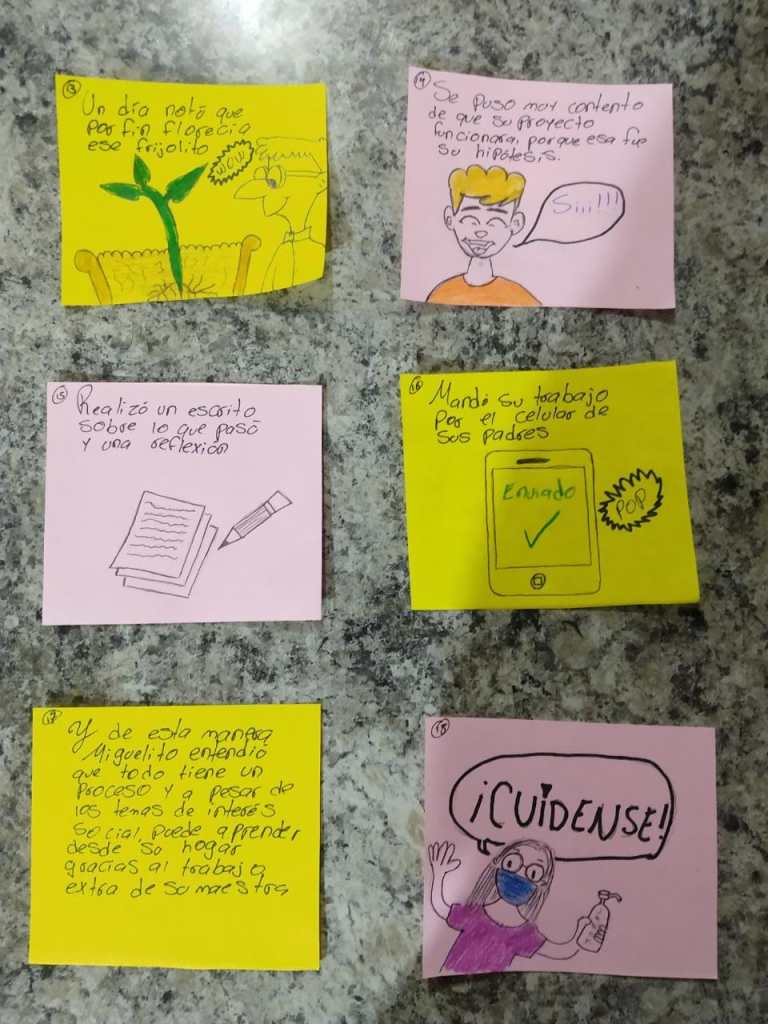 13
Un día notó que
por fin florecía
ese frijolito
WOW
14
Se puso muy contento
de que su proyecto
funcionara, porque esa fue
su hipótesis.
Siii!!!
15
Realizó un escrito
sobre lo que pasó
y una reflexión
16
Mandó su trabajo
por el celular de
sus padres
Enviado
POP
17
Y de esta manera
Miguelito entendió
que todo tiene un
proceso y a pesar de
los temas de interés
social, puede aprender
desde su hogar
gracias al trabajo
extra de su maestra
18
¡CUÍDENSE!